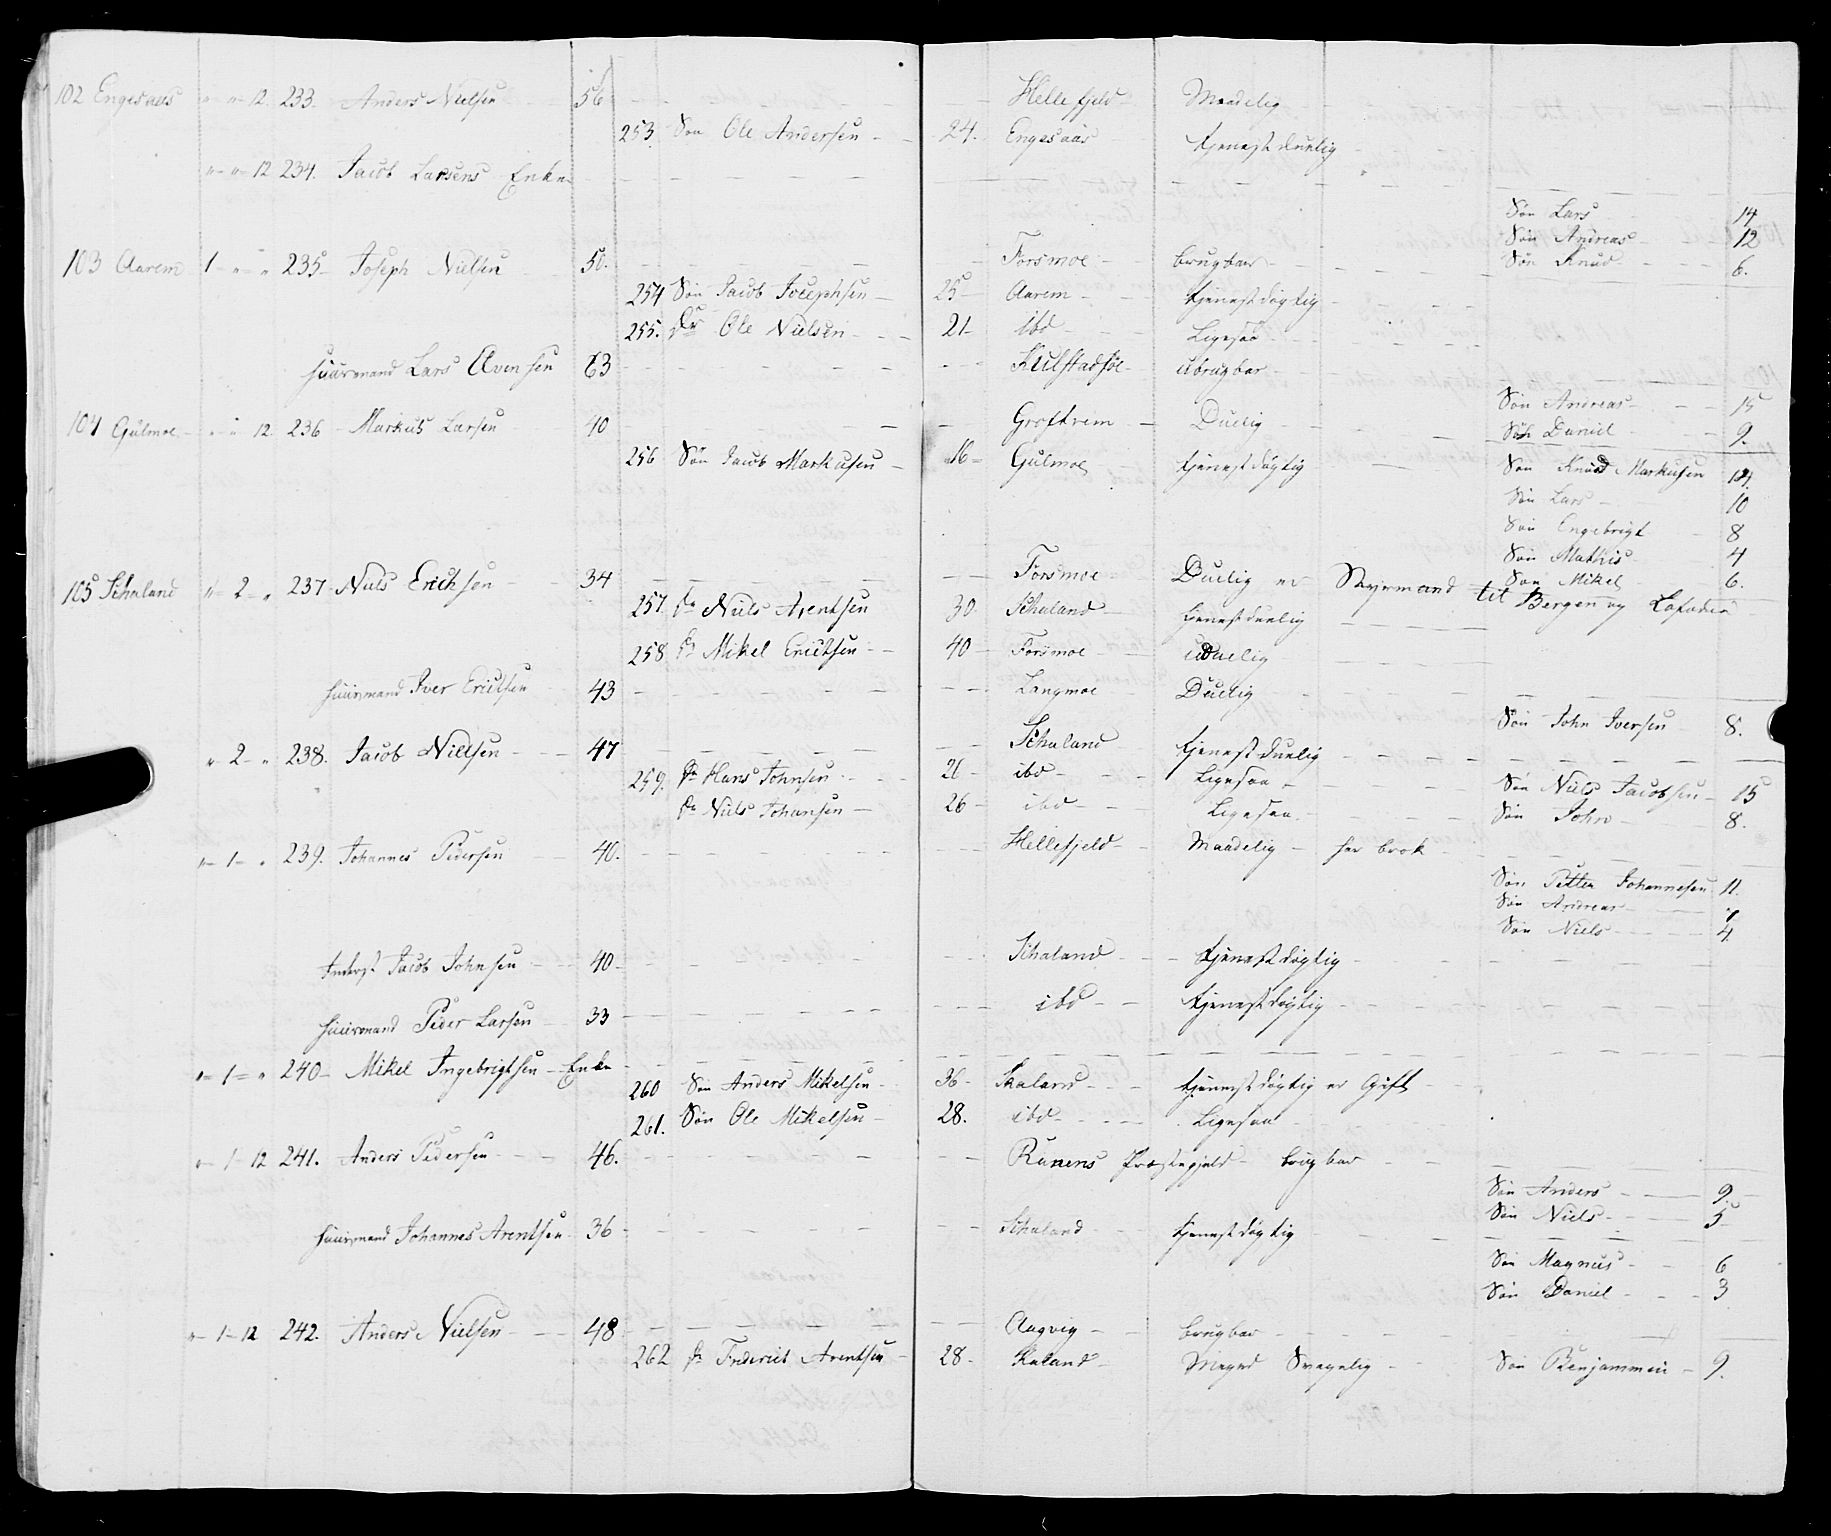 102 Engesaas " " 12. 233. Anders Nielsen 56 Hellefjeld Maadelig
253. Søn Ole Andersen 24. Engesaas tjenestduelig
" " 12 234. Jacob Larsens Enke
Søn Lars 14
Søn Andreas 12
103 Aarem 1 " " 235 Joseph Nielsen 50. Forsmoe brugbar Søn Knud 6.
254 Søn Jacob Josephsen 25 Aarem tjenestdøgtig
255. Dr Ole Nielsen 21 ibd Ligesaa
Huusmand Lars Evensen 63 Kulstadsøe ubrugbar
Søn Andreas 15
104 Gulmoe " " 12. 236 Markus Larsen 40 Groftrem Duelig Søn Daniel 9.
256 Søn Jacob Markusen 16 Gulmoe tjenestdøgtig Søn Knud Markusen 14.
Søn Lars 10
Søn Engebrigt 8
Søn Mathis 4
105 Schaland " 2 " 237 Niels Erichsen 34 Forsmoe Duelig er Styrmand til Bergen og Lofoden Søn Mikel 6.
257. Dr Niels Arentsen 30. Schaland tjenestduelig
258 Dr Mikel Erictsen 40 Forsmoe uduelig
Huusmand Iver Erictsen 43 Langmoe Duelig
Søn John Iversen 8.
" 2 " 238. Jacob Nielsen 47 Schaland tjenestduelig
259. Dr Hans Johnsen 21 ibd Ligesaa Søn Niels Jacobsen 15
Dr Niels Johansen 26 ibd Ligesaa Søn John 8.
" 1 " 239. Johannes Pedersen 40. Hellefjeld Maadelig har brok
Søn Petter Johannesen 11.
Søn Andreas 7
Søn Niels 4
Inderst Jacob Johnsen 40 Schaland tjenestdøgtig
Huusmand Peder Larsen 33 ibd tjenestdøgtig
" 1 " 240 Mikel Ingebrigtsen Enke
260 Søn Anders Mikelsen 36 Skaland tjenestdøgtig er Gift
261. Søn Ole Mikelsen 28. ibd Ligesaa
" 1 12 241. Anders Pedersen 46. Ranens Præstegjeld brugbar
Søn Anders 9.
Søn Niels 5
Huusmand Johannes Arentsen 36 Schaland tjenestdøgtig
Søn Magnus 6
Søn Daniel 3
" 1 12 242. Anders Nielsen 48 Aagvig brugbar
262 Dr Friderich Arentsen 28. Skaland Meget Svagelig Søn Benjammin 9.